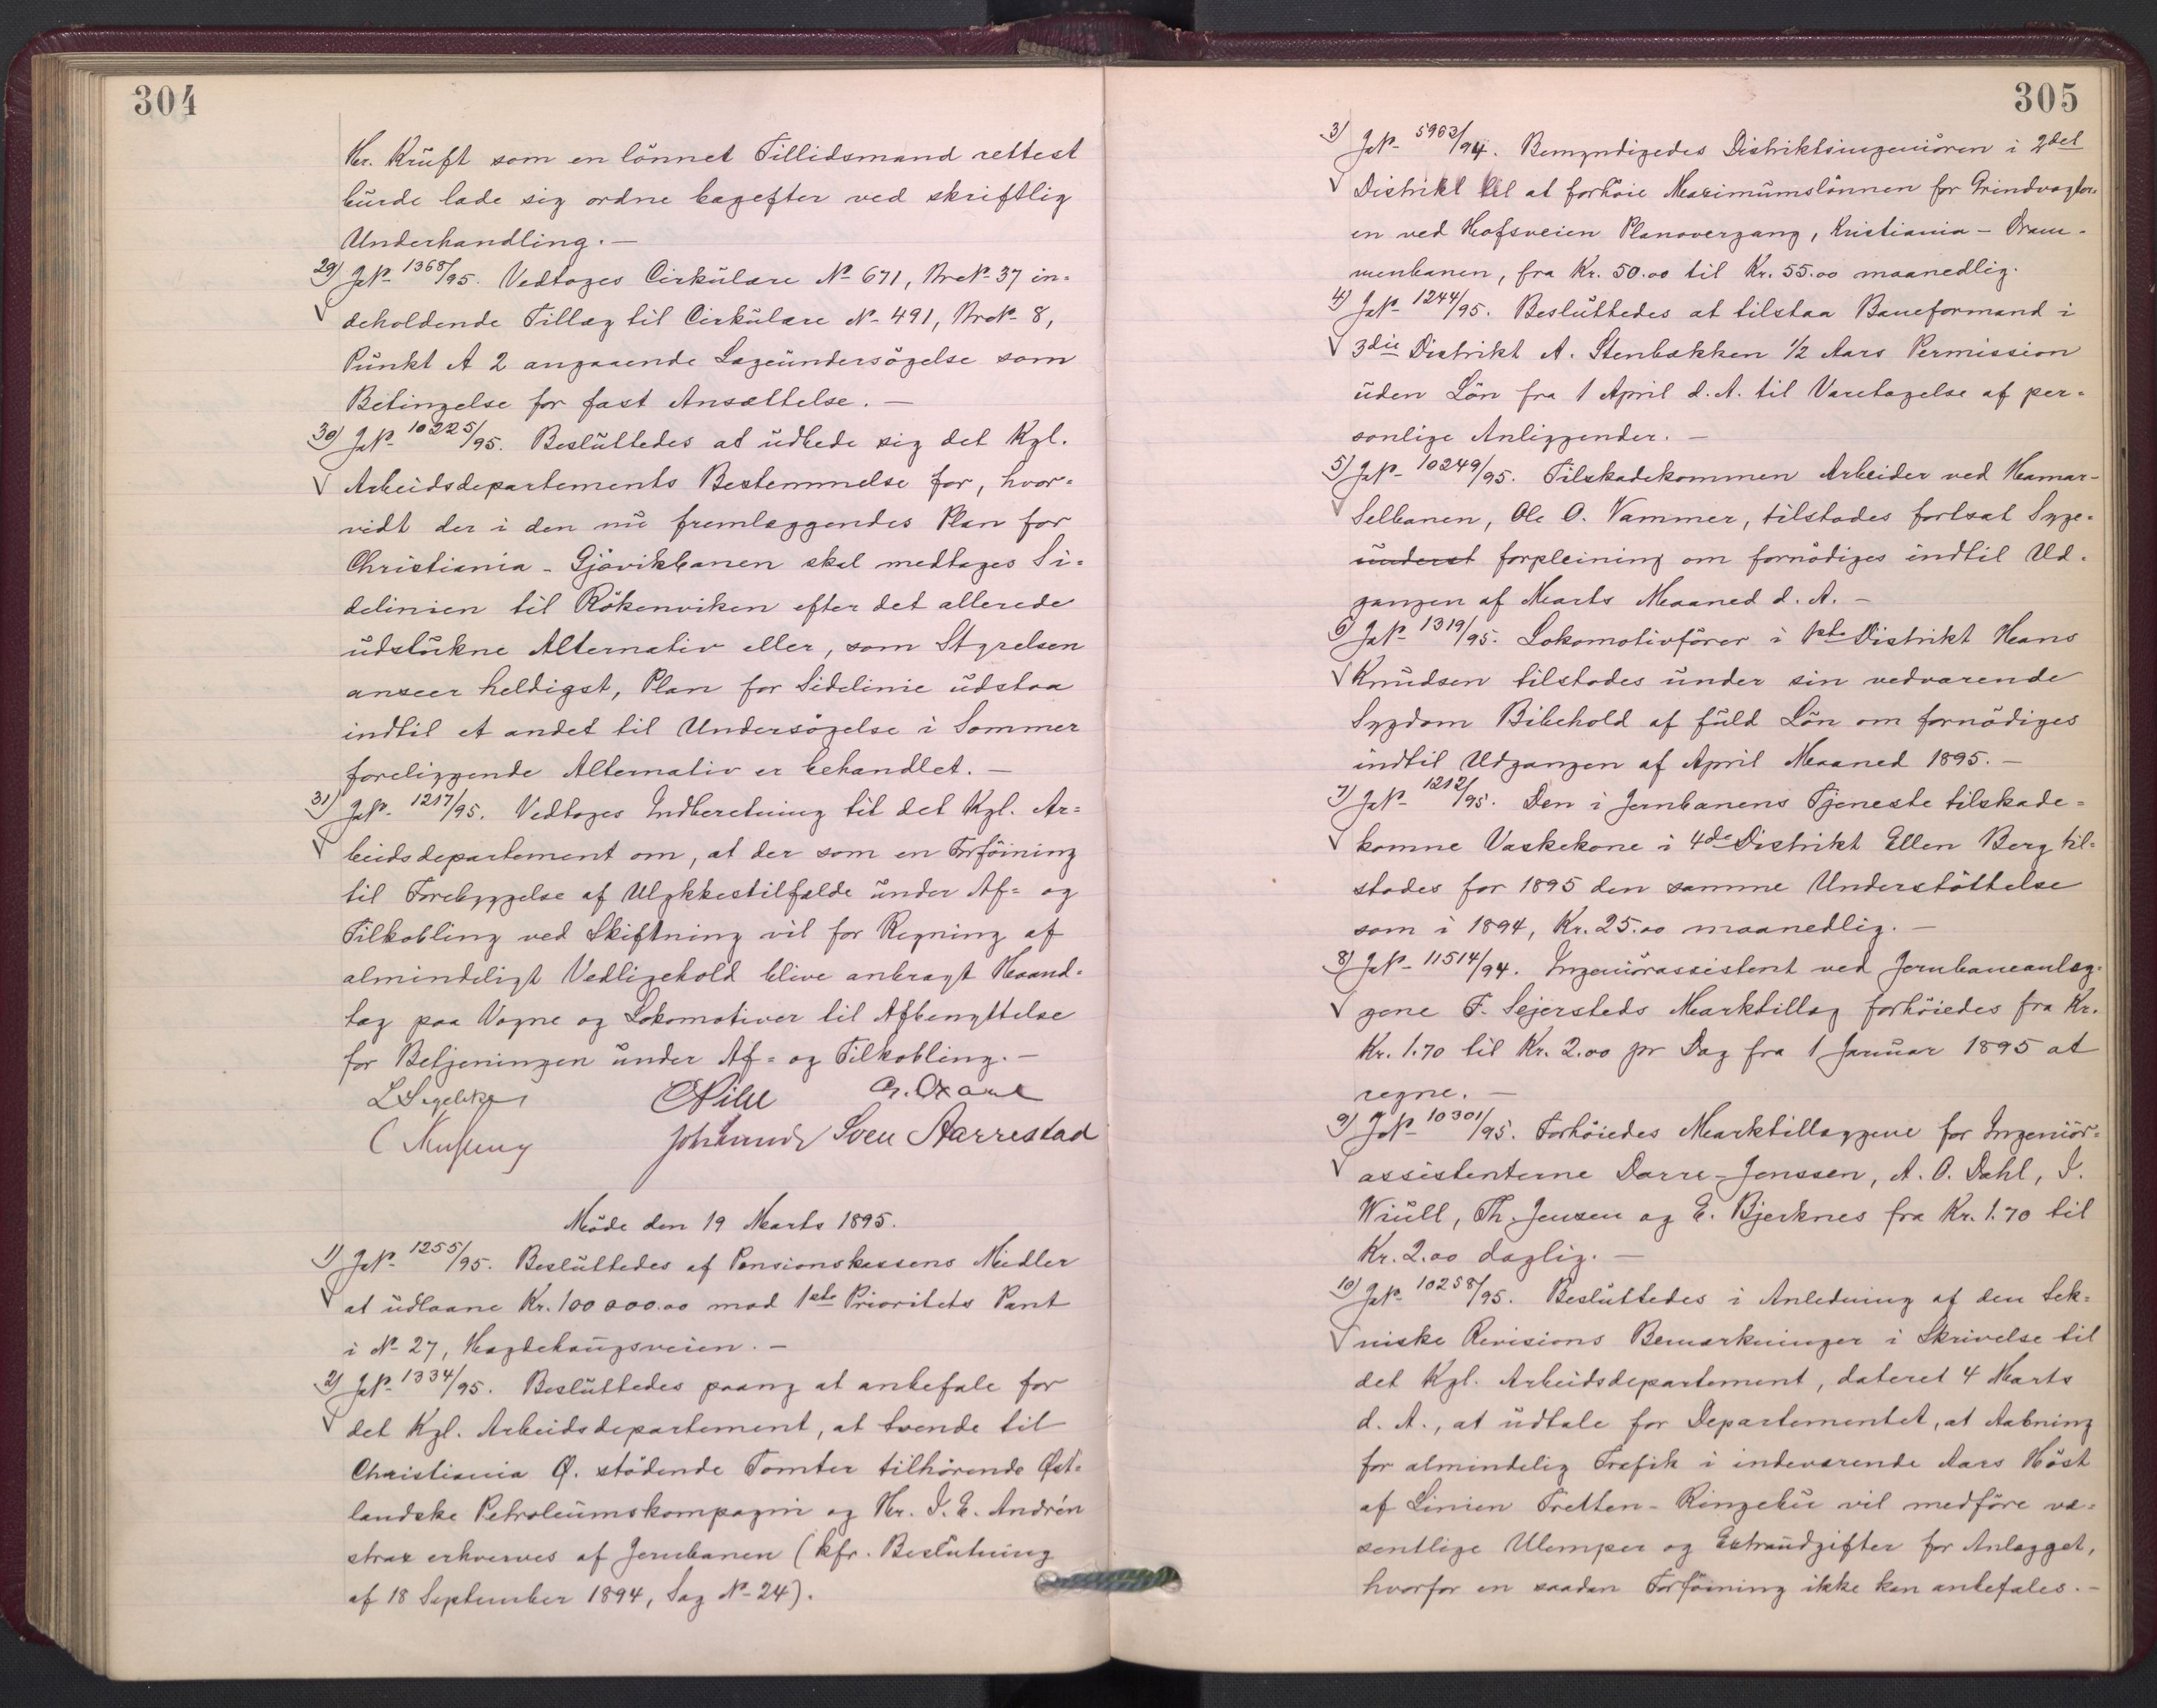 304
Hr. Krüft som en lönnet Tillidsmand rettest
burde lade sig ordne bagefter ved skriftlig
Underhandling. —
29) JNo 1368/95. Vedtoges Cirkulære No 671, BreNo 37 in-
deholdende Tillæg til Cirkulære No 491, BreNo 8,
Punkt A 2 angaaende Lægeundersögelse som
Betingelse for fast Ansættelse. —
30) JNo 10225/95. Besluttedes at udbede sig det Kgl.
Arbeidsdepartements Bestemmelse for, hvor-
vidt der i den nu fremlæggendes Plan for
Christiania - Gjövikbanen skal medtages Si-
delinien til Rökenviken efter det allerede
udstukne Alternativ eller, som Styrelsen
anseer heldigst, Plan for Sidelinie udstaa
indtil et andet til Undersögelse i Sommer
foreliggende Alternativ er behandlet. —
31) JNo 1217/95. Vedtoges Indberetning til det Kgl. Ar-
beidsdepartement om, at der som en Forföining
til Forebyggelse af Ulykkestilfælde under Af- og
Tilkobling ved Skiftning vil for Regning af
almindeligt Vedligehold blive anbragt Haand-
tag paa Vogne og Lokomotiver til Afbenyttelse
for Betjeningen under Af- og Tilkobling. —
CPihl
Sven Aarrestad
Möde den 19 Marts 1895.
1) JNo 1255/95. Besluttedes af Pensionskassens Midler
at udlaane Kr. 100 000.00 mod 1ste Prioritets Pant
i No 27, Hægdehaugsveien. —
2) JNo 1334/95. Besluttedes paany at anbefale for
det Kgl. Arbeidsdepartement, at tvende til
Christiania Ø. stödende Tomter tilhörende Øst-
landske Petroleumskompagni og Hr. I. E. Andrén
strax erhverves af Jernbanen (kfr. Beslutning
af 18 September 1894, Sag No 24).
305
3) JNo 5963/94. Bemyndigedes Distriktsingeniören i 2det
Distrikt til at forhöie Maximumslönnen for Grindvogter-
en ved Hofsveien Planovergang, Kristiania - Dram-
menbanen, fra Kr. 50.00 til Kr. 55.00 maanedlig.
4) JNo 1244/95. Besluttedes at tilstaa Baneformand i
3die Distrikt A. Stenbakken 1/2 Aars Permission
uden Lön fra 1 April d. A. til Varetagelse af per-
sonlige Anliggender. —
5) JNo 10249/95. Tilskadekommen Arbeider ved Hamar-
Selbanen, Ole O. Vammer, tilstodes fortsat Syge-
underst forpleining om fornödiges indtil Ud-
gangen af Marts Maaned d. A. —
6) JNo 1319/95. Lokomotivförer i 1ste Distrikt Hans
Knudsen tilstodes under sin vedvarende
Sygdom Bibehold af fuld Lön om fornödiges
indtil Udgangen af April Maaned 1895. —
7) JNo 1212/95. Den i Jernbanens Tjeneste tilskade-
komne Vaskekone i 4de Distrikt Ellen Berg til-
stodes for 1895 den samme Understöttelse
som i 1894, Kr. 25.00 maanedlig. —
8) JNo 11514/94. Ingeniörassistent ved Jernbaneanlæg-
gene F. Sejersteds Marktillæg forhöiedes fra Kr.
Kr. 1.70 til Kr. 2.00 pr Dag fra 1 Januar 1895 at
regne. —
9) JNo 10301/95. Forhöiedes Marktillæggene for Ingeniör-
assistenterne Darre-Jenssen, A. O. Dahl, I.
Wiull, Th. Jensen og E. Bjerknes fra Kr. 1.70 til
Kr. 2.00 daglig. —
10) JNo 10258/95. Besluttedes i Anledning af den tek-
niske Revisions Bemærkninger i Skrivelse til
det Kgl. Arbeidsdepartement, dateret 4 Marts
d. A., at udtale for Departementet, at Aabning
for almindelig Trafik i indeværende Aars Höst
af Linien Tretten - Ringebu vil medföre væ-
sentlige Ulemper og Extraudgifter for Anlægget,
hvorfor en saadan Forföining ikke kan anbefales. —